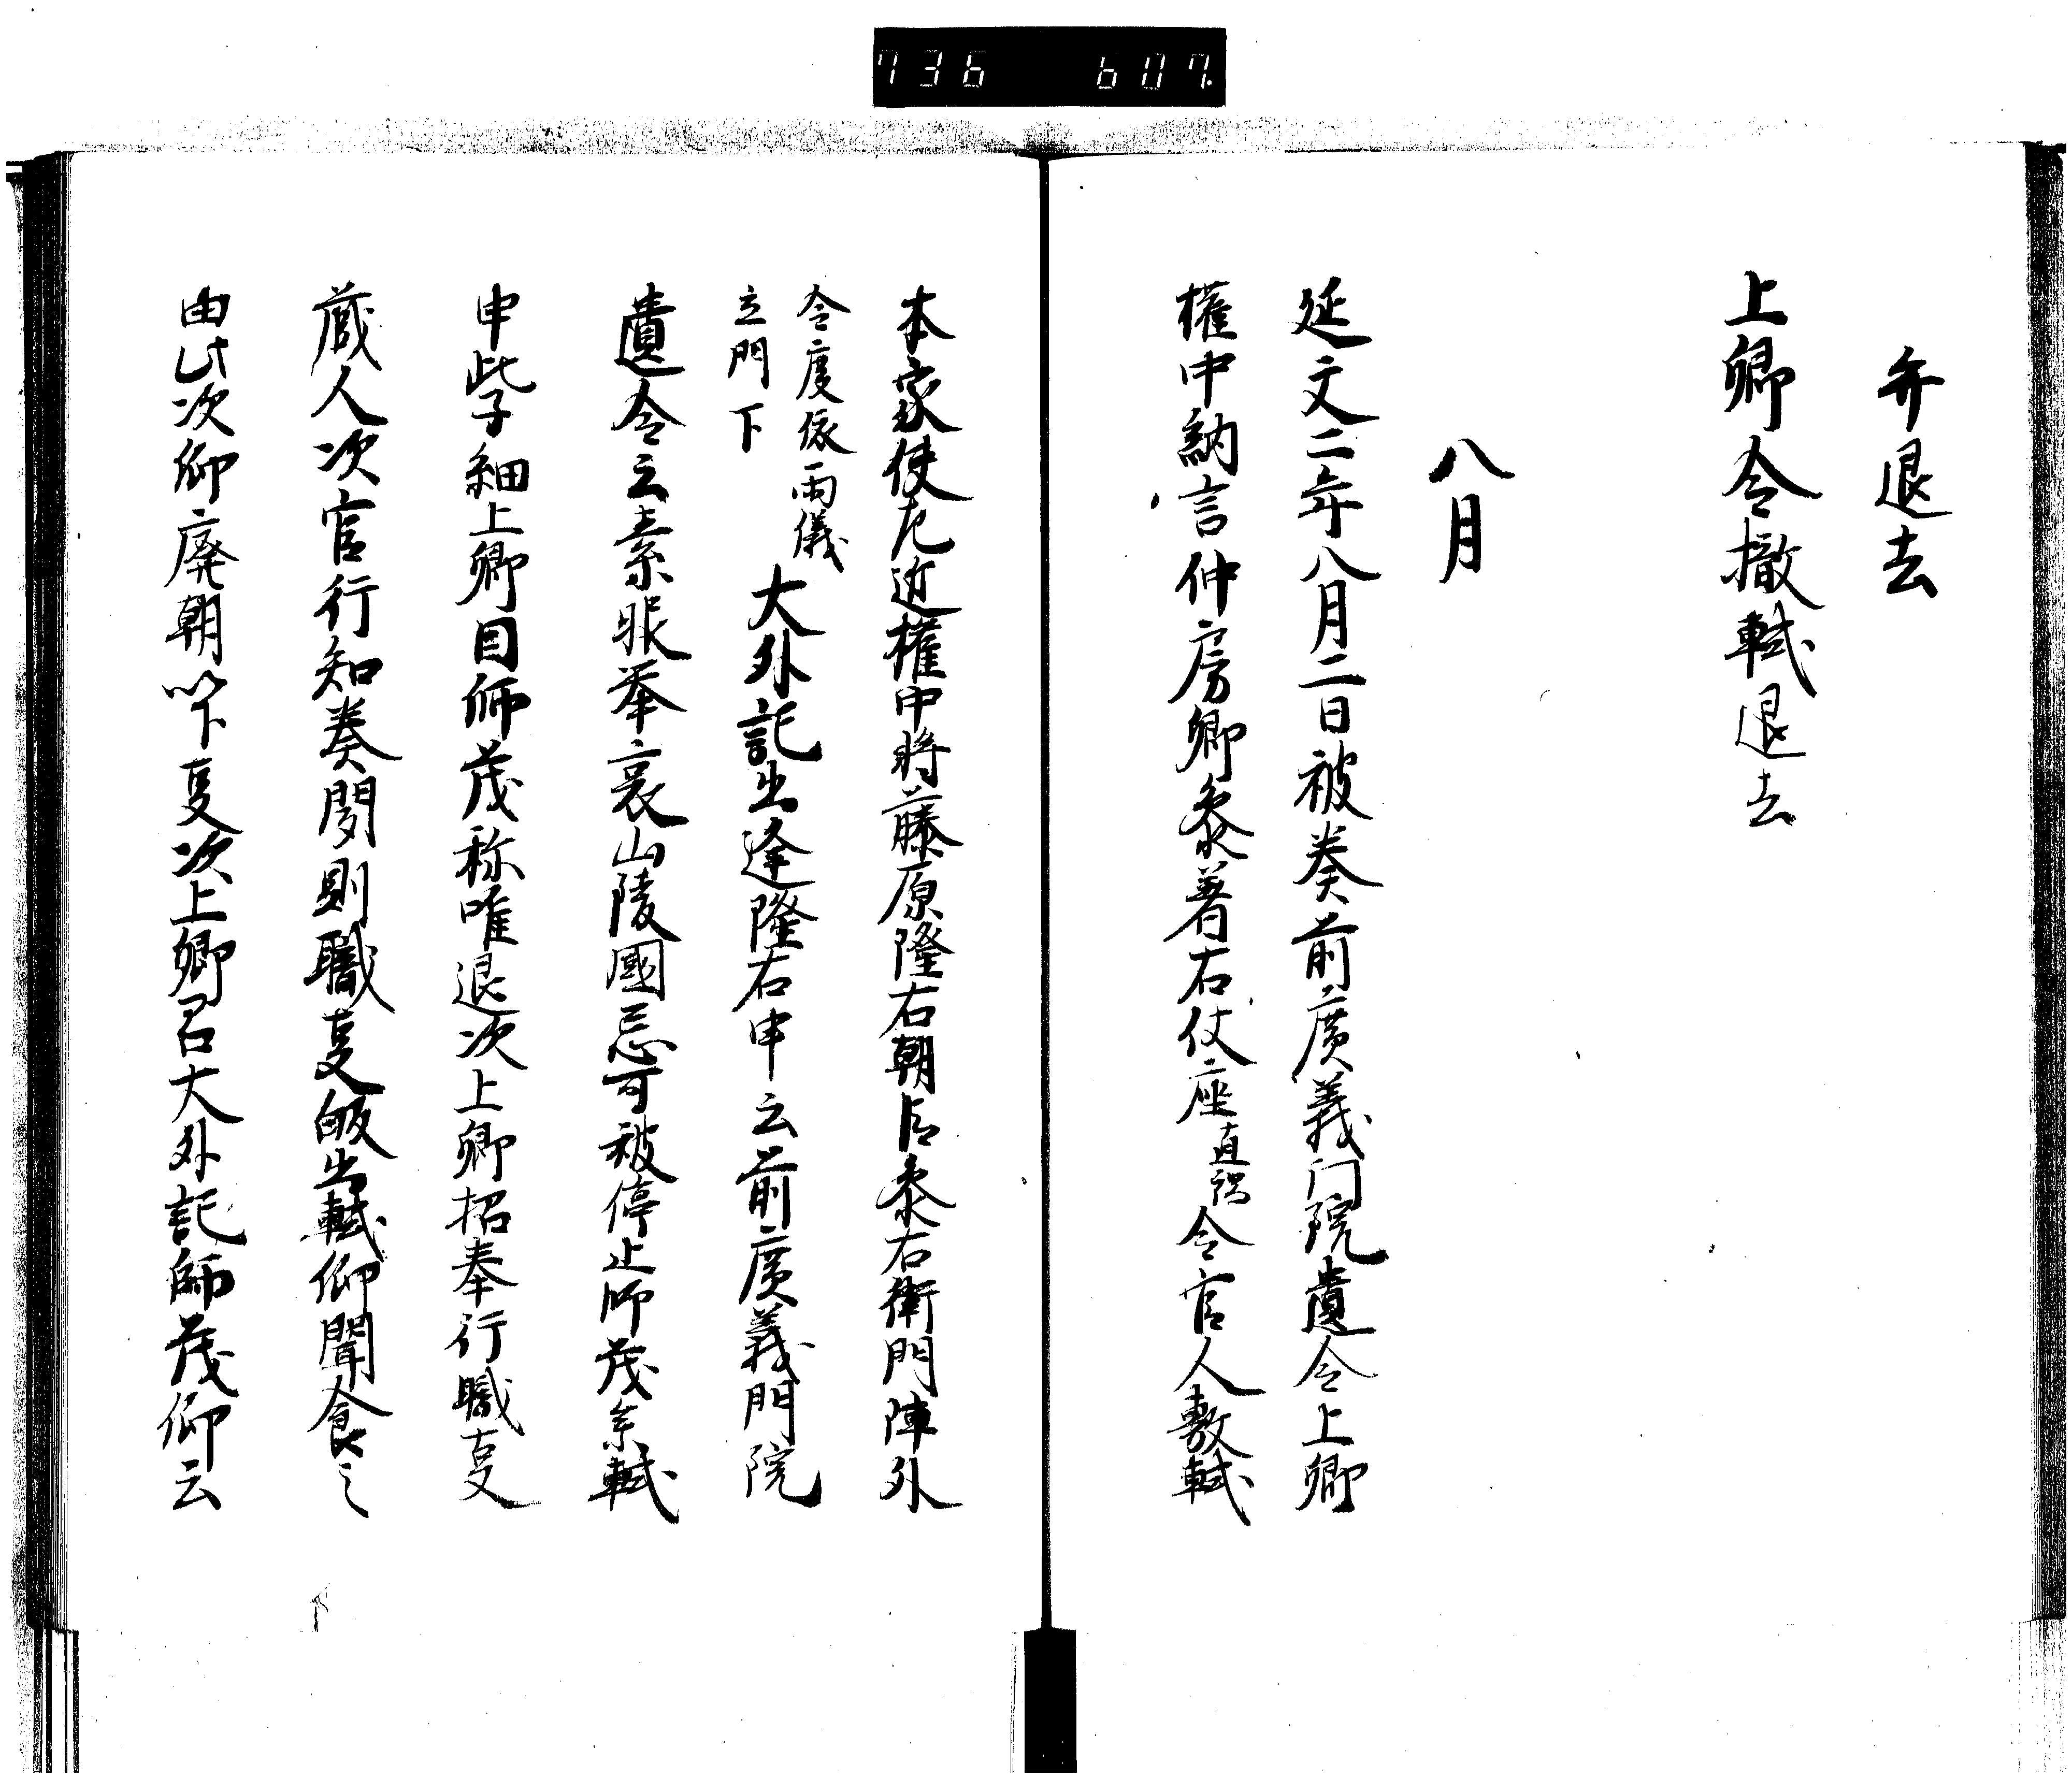 736 607.
弁退去
上卿令撤軾退去
八月
延文二年八月二日被奏前廣義门院遺令上卿
權中納言仲房卿参著右仗座直移令官人敷軾
本家使左近權中将藤原隆右朝臣参右衛門陣外
令度依雨儀
立門下
大外記出逢隆右申云前廣義門院
遺令云素服挙哀山陵國忌可被停止師茂参軾
申此子細上卿目師茂称唯退次上卿招奉行職事
蔵人次官行知奏聞則職事皈出軾仰聞食之
由此次仰廃朝以下事次上卿召大外記師茂仰云